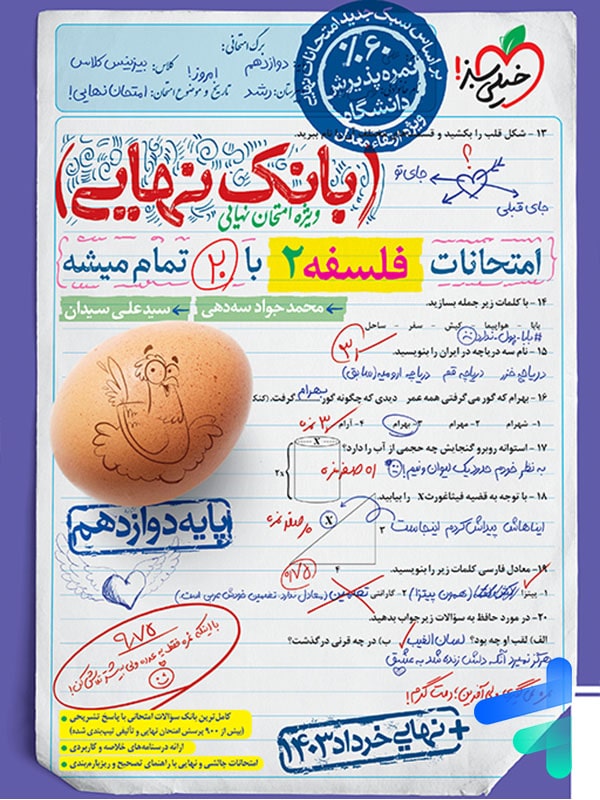 خیلی سبز!
براساس سبک جدید امتحانات نهایی
%۶۰
نمره پذیرش
دانشگاه
ویژه ارتقاء معدل
برگ امتحانی:
دوازدهم
کلاس: بیزینس کلاس
امروز!
رشد
تاریخ و موضوع امتحان: امتحان نهایی!
۱۳- شکل قلب را بکشید و
نام ببرید.
؟
جای تو
جای قبلی
(بانک نهایی)
ویژه امتحان نهایی
امتحانات فلسفه ۲ با ۲۰ تمام میشه
محمدجواد سه‌دهی
سیدعلی سیدان
۱۴- با کلمات زیر جمله بسازید.
بابا - هواپیما - کیش - سفر - ساحل
#بابا_پول_نداره
۱۵- نام سه دریاچه در ایران را بنویسید.
دریاچه خزر دریاچه قم دریاچه ارومیه (سابق)
۱۶- بهرام که گور می‌گرفتی همه عمر دیدی که چگونه گور بهرام گرفت.
۱- شهرام ۲- مهرام ۳- بهرام ۴- آرام
۱۷- استوانه روبرو گنجایش چه حجمی از آب را دارد؟
به نظر خودم حدود یک لیوان و نیم!
X
2x
۱۸- با توجه به قضیه فیثاغورث X را بیابید.
ایناهاش پیداش کردم اینجاست
X
۳
۴
۰/۷۵
۱۹- معادل فارسی کلمات زیر را بنویسید.
۱- پیتزا (همون پیتزا) ۲- گارانتی تضمین (معادل ندارد. تضمین خودش عربی است.)
۲۰- در مورد حافظ به سؤالات زیر جواب بدهید.
الف) لقب او چه بود؟ لسان الغیب ب) در چه قرنی درگذشت؟
هرگز نمیرد آنکه دلش زنده شد به عشق
پایه دوازدهم
۹/۷۵
با اینکه نمره فقط یه عدده ولی بیشتر تلاش کن!
کامل‌ترین بانک سؤالات امتحانی با پاسخ تشریحی
(بیش از ۹۰۰ پرسش امتحان نهایی و تألیفی تیپ‌بندی شده)
ارائه درسنامه‌های خلاصه و کاربردی
امتحانات چالشی و نهایی با راهنمای تصحیح و ریزبارم‌بندی
+ نهایی خرداد ۱۴۰۳